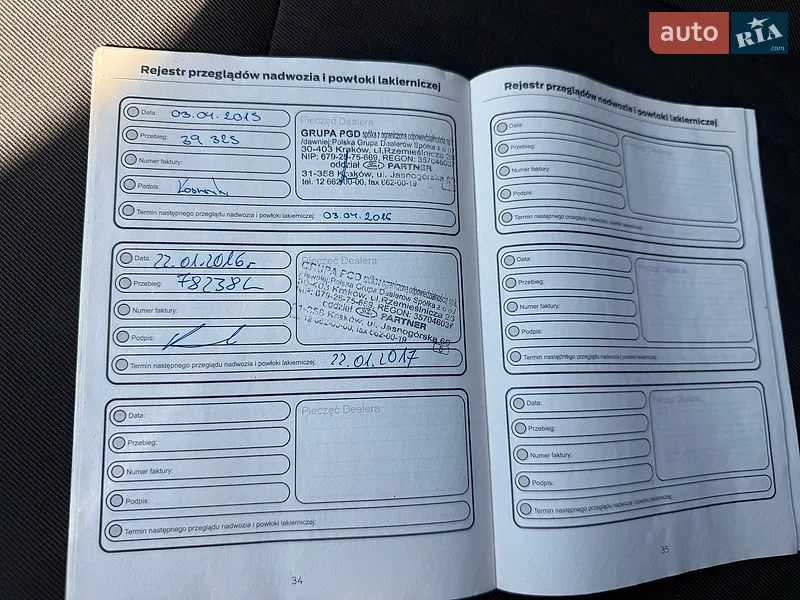 auto RIA .com
Rejestr przeglądów nadwozia i powłoki lakierniczej
Data: 03.04.2015
Przebieg: 39 325
Numer faktury:
Podpis:
Pieczęć Dealera
GRUPA PGD spółka z ograniczoną odpowiedzialnością sp. k.
/dawniej:Polska Grupa Dealerów Spółka z o.o./
30-403 Kraków, ul.Rzemieślnicza 23
NIP: 679-25-75-669, REGON: 357046037
oddział Ford PARTNER
31-358 Kraków, ul. Jasnogórska 60
tel. 12 662-00-00, fax 662-00-19
Termin następnego przeglądu nadwozia i powłoki lakierniczej: 03.04.2016
Data: 22.01.2016r
Przebieg: 78238
Numer faktury:
Podpis:
Pieczęć Dealera
GRUPA PGD spółka z ograniczoną odpowiedzialnością sp. k.
/dawniej:Polska Grupa Dealerów Spółka z o.o./
30-403 Kraków, ul.Rzemieślnicza 23
NIP: 679-25-75-669, REGON: 357046037
oddział Ford PARTNER
31-358 Kraków, ul. Jasnogórska 60
12 662-00-00, fax 662-00-19
Termin następnego przeglądu nadwozia i powłoki lakierniczej: 22.01.2017
Data:
Przebieg:
Numer faktury:
Podpis:
Pieczęć Dealera
Termin następnego przeglądu nadwozia i powłoki lakierniczej:
34
Rejestr przeglądów nadwozia i powłoki lakierniczej
Data:
Przebieg:
Numer faktury:
Podpis:
Pieczęć Dealera
Termin następnego przeglądu nadwozia i powłoki lakierniczej:
Data:
Przebieg:
Numer faktury:
Podpis:
Pieczęć Dealera
Termin następnego przeglądu nadwozia i powłoki lakierniczej:
Data:
Przebieg:
Numer faktury:
Podpis:
Pieczęć Dealera
Termin następnego przeglądu nadwozia i powłoki lakierniczej:
35